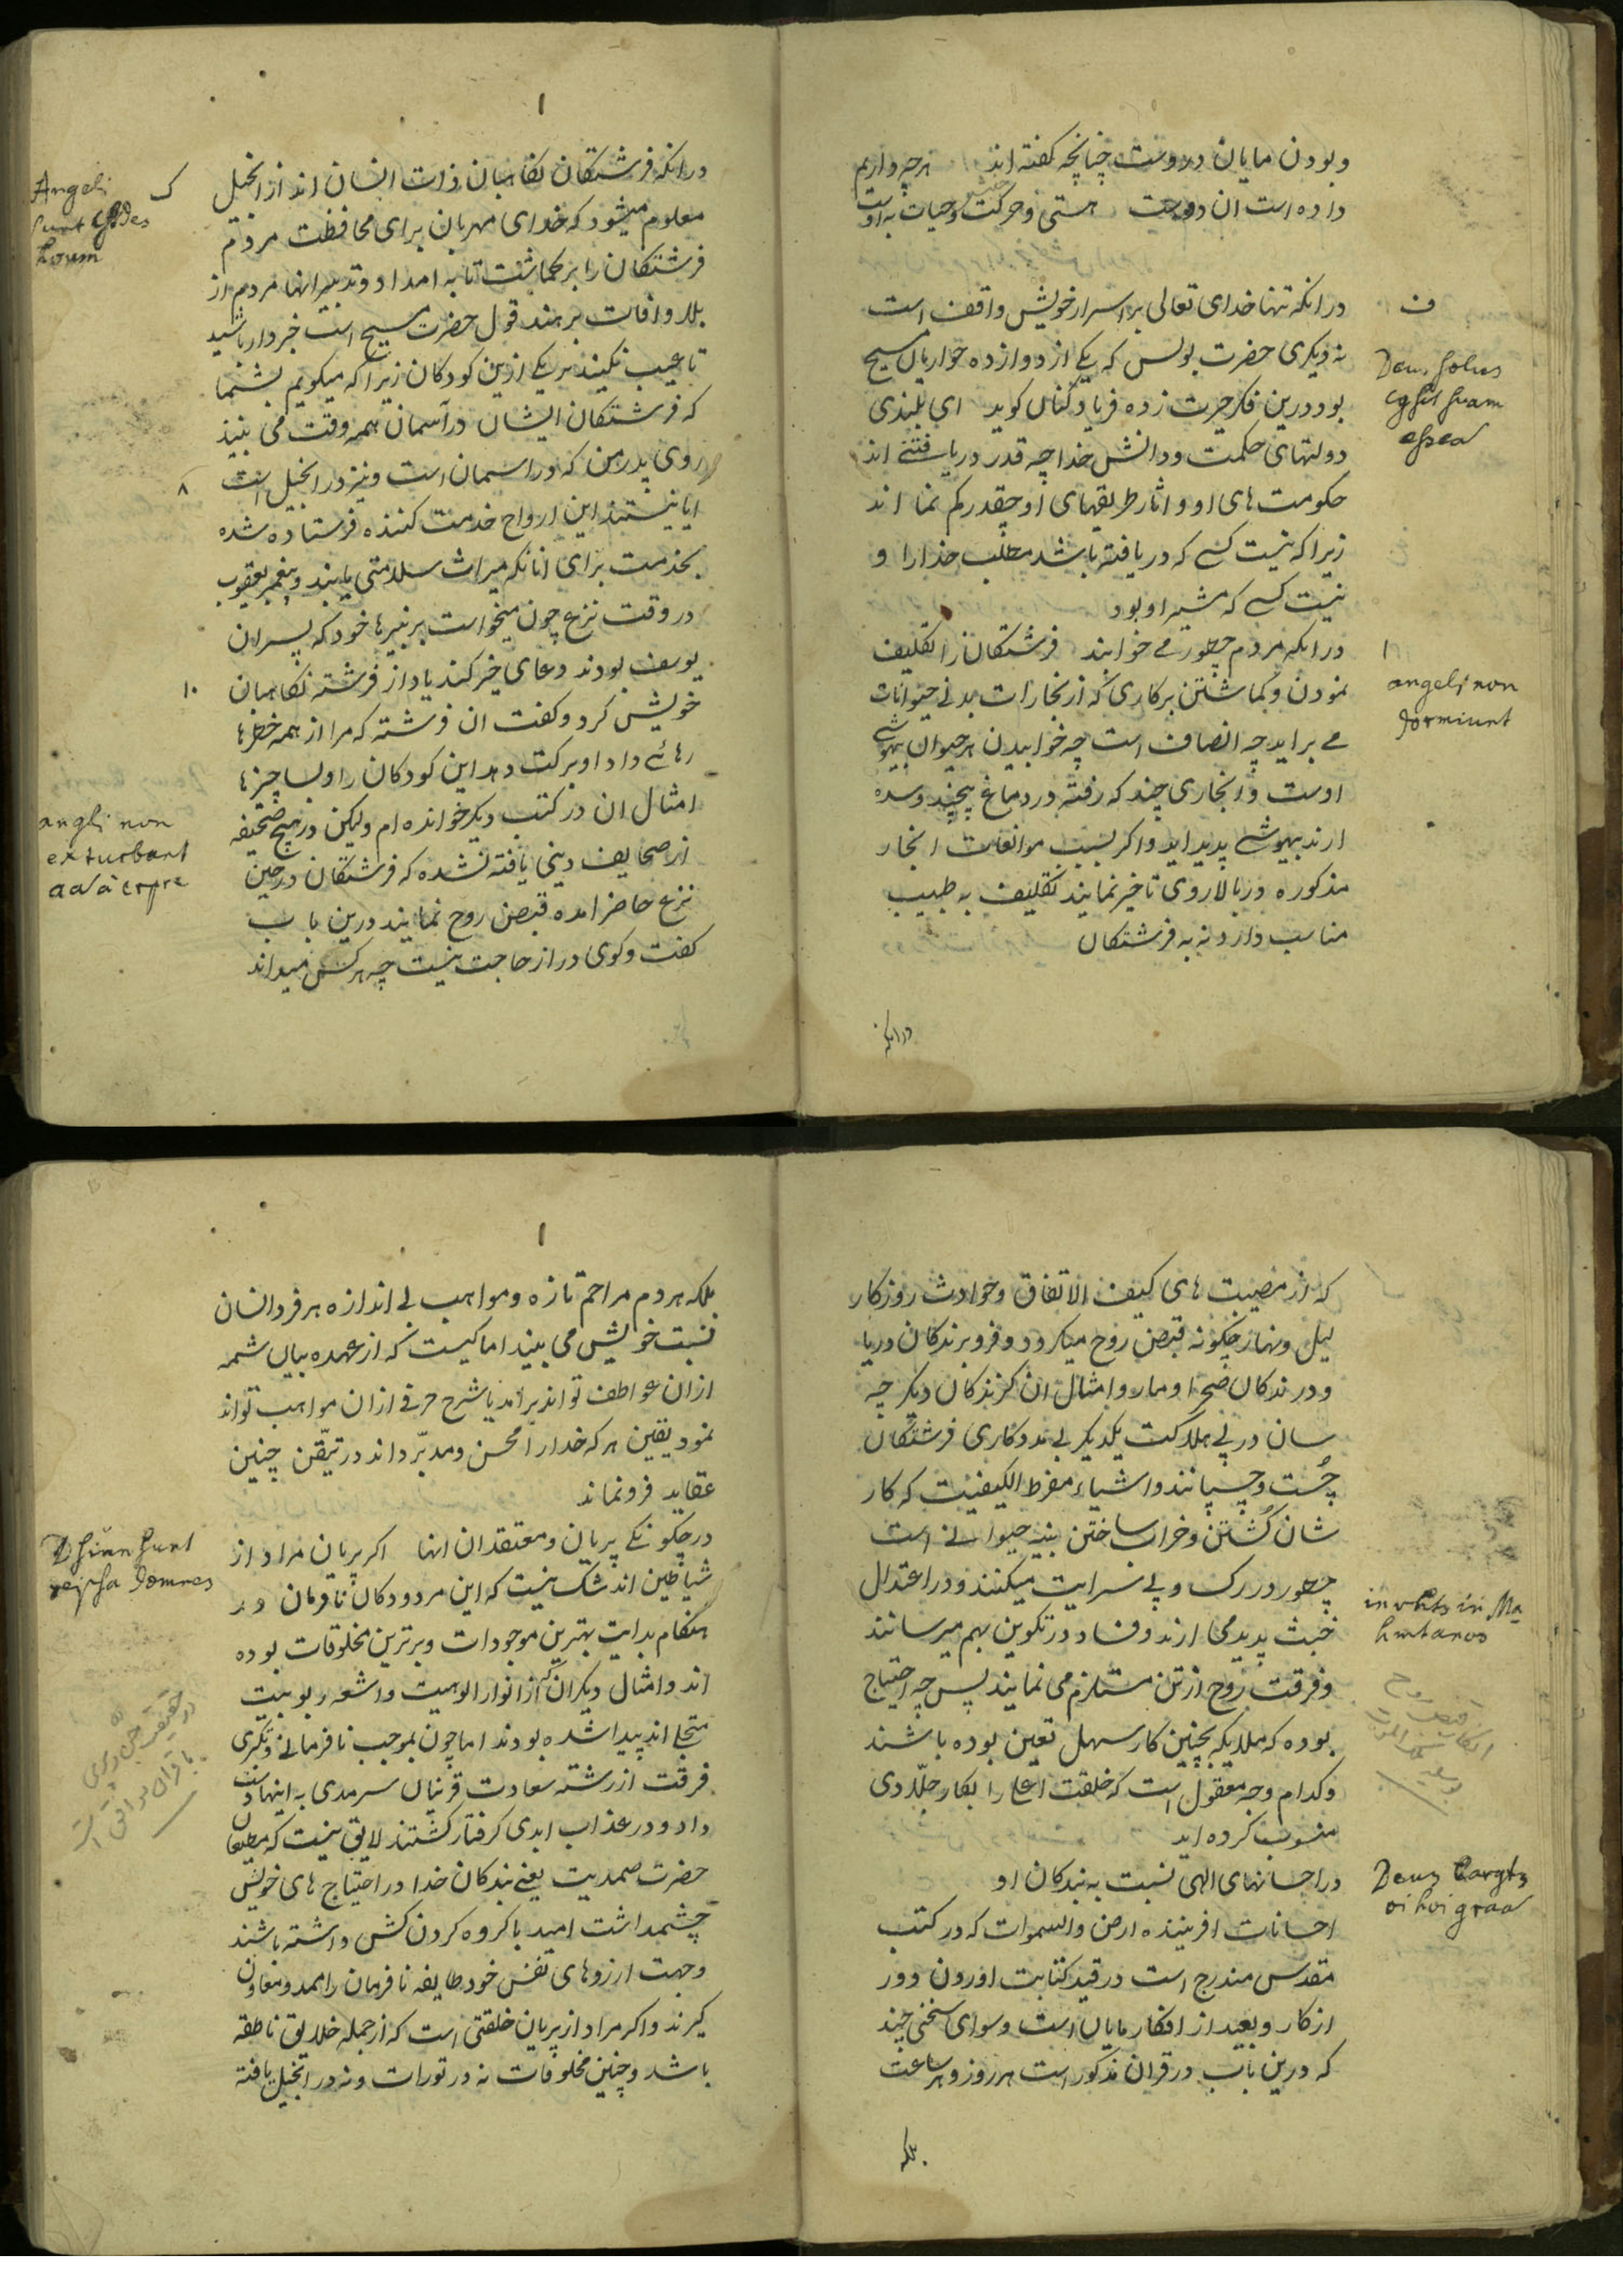 وبودن مایان دروست چنانچه کفته اند هرچه داریم
داده است ان دوست هستی وحرکت وحیات به اوست
ف
درانکه تنها خدای تعالی بر اسرار خویش واقف است
Deus solus
نه دیکری حضرت بولس که یکی از دوازده حواریان مسیح
بود درین فکر حیرت زده فریاد کنان کوید ای بلندی
دولتهای حکمت ودانش خدا چه قدر دریافتنی اند
حکومت های او واثار طریقهای او چقدر کم نما اند
زیراکه نیست کسی که دریافته باشد مطلب خدا را و
نیست کسی که مشیر او بود
درانکه مردم چطور می خوابند فرشتکان را تکلیف
angeli non
dormiunt
نمودن وکماشتن برکاری که از بخارات بدنی حیوانات
می براید چه انصاف است چه خوابیدن هر حیوان بیهوشی
اوست وابخاری چند که رفته در دماغ پیچند وسده
ارند بیهوشی پدید اید واکر بسبب موانعات ابخار
مذکوره در بالاروی تاخیر نمایند تکلیف به طبیب
مناسب دارد نه به فرشتکان
درانکه
۱
Angeli
درانکه فرشتکان نکاهبان ذات انسان اند از انجیل
معلوم میشود که خدای مهربان برای محافظت مردم
فرشتکان را برکماشت تا به امداد وتدبیر انها مردم از
بلا وافات برهند قول حضرت مسیح است خبردار باشید
تا عیب نکنید بر یکی ازین کودکان زیراکه میکویم بشما
که فرشتکان ایشان در آسمان همه وقت می بینند
روی پدر من که در اسمان است ونیز در انجیل است
۸
ایا نیستند این ارواح خدمت کننده فرستاده شده
بخدمت برای انانکه میراث سلامتی یابند وپیغمبر یعقوب
در وقت نزع چون میخواست بر نبیرها خود که پسران
یوسف بودند دعای خیر کند یاد از فرشته نکاهبان
۱۰
خویش کرد وکفت ان فرشته که مرا از همه خطرها
رهائی داد او برکت دهد این کودکان را وبسا چیزها
امثال ان در کتب دیکر خوانده ام ولیکن در هیچ صحیفه
angli non
exturbant
از صحایف دینی یافته نشده که فرشتکان در حین
نزع حاضر امده قبض روح نمایند درین باب
کفت وکوی دراز حاجت نیست چه هرکس میداند
که از مصیبت های کیف الاتفاق وحوادث روزکار
لیل ونهار چکونه قبض روح میکردد وفروبرندکان دریا
ودرندکان صحرا ومار وامثال ان کزندکان دیکر چه
سان در پی هلاکت یکدیکر بی مددکاری فرشتکان
چُست وچسپانند واشیاء مفرط الکیفیت که کار
شان کُشتن وخراب ساختن بنیه حیوانی است
چطور در رک وپی سرایت میکنند ودر اعتدال
خبث پدید می ارند وفساد در تکوین بهم میرسانند
وفرقت روح از تن مستلزم می نمایند پس چه احتیاج
بوده که ملایکه بچنین کار سهل تعین بوده باشند
وکدام وجه معقول است که خلقت اعلی را بکار جلّادی
منسوب کرده اید
در احسانهای الهی نسبت به بندکان او
احسانات افریننده ارض والسموات که در کتب
مقدس مندرج است در قید کتابت اوردن دور
از کار وبعید از افکار مایان است وسوای سخنی چند
که درین باب در قران مذکور است هر روز وهر ساعت
بلکه
۱
بلکه هردم مراحم تازه ومواهب بی اندازه هر فرد انسان
نسبت خویش می بیند اما کیست که از عهده بیان شمه
ازان عواطف تواند برامد یا شرح حرفی ازان مواهب تواند
نمود یقین هرکه خدا را محسن ومدبّر داند در تیقّن چنین
عقاید فرو نماند
در چکونکی پریان ومعتقدان انها اکر پریان مراد از
شیاطین اند شک نیست که این مردودکان نافرمان در
هنکام بدایت بهترین موجودات وبرترین مخلوقات بوده
اند وامثال دیکران که از انوار الوهیت واشعه ربوبیت
متجلی اند پیدا شده بودند اما چون بموجب نافرمانی وتکبری
فرقت از رشته سعادت قرینان سرمدی به اینها دست
داد ودر عذاب ابدی کرفتار کشتند لایق نیست که مطیعان
حضرت صمدیت یعنی بندکان خدا در احتیاج های خویش
چشمداشت امید با کروه کردن کش داشته باشند
وجهت ارزوهای نفس خود طایفه نافرمان را ممد ومعاون
کیرند واکر مراد از پریان خلقتی است که از جمله خلایق ناطقه
باشد وچنین مخلوقات نه در تورات ونه در انجیل یافته